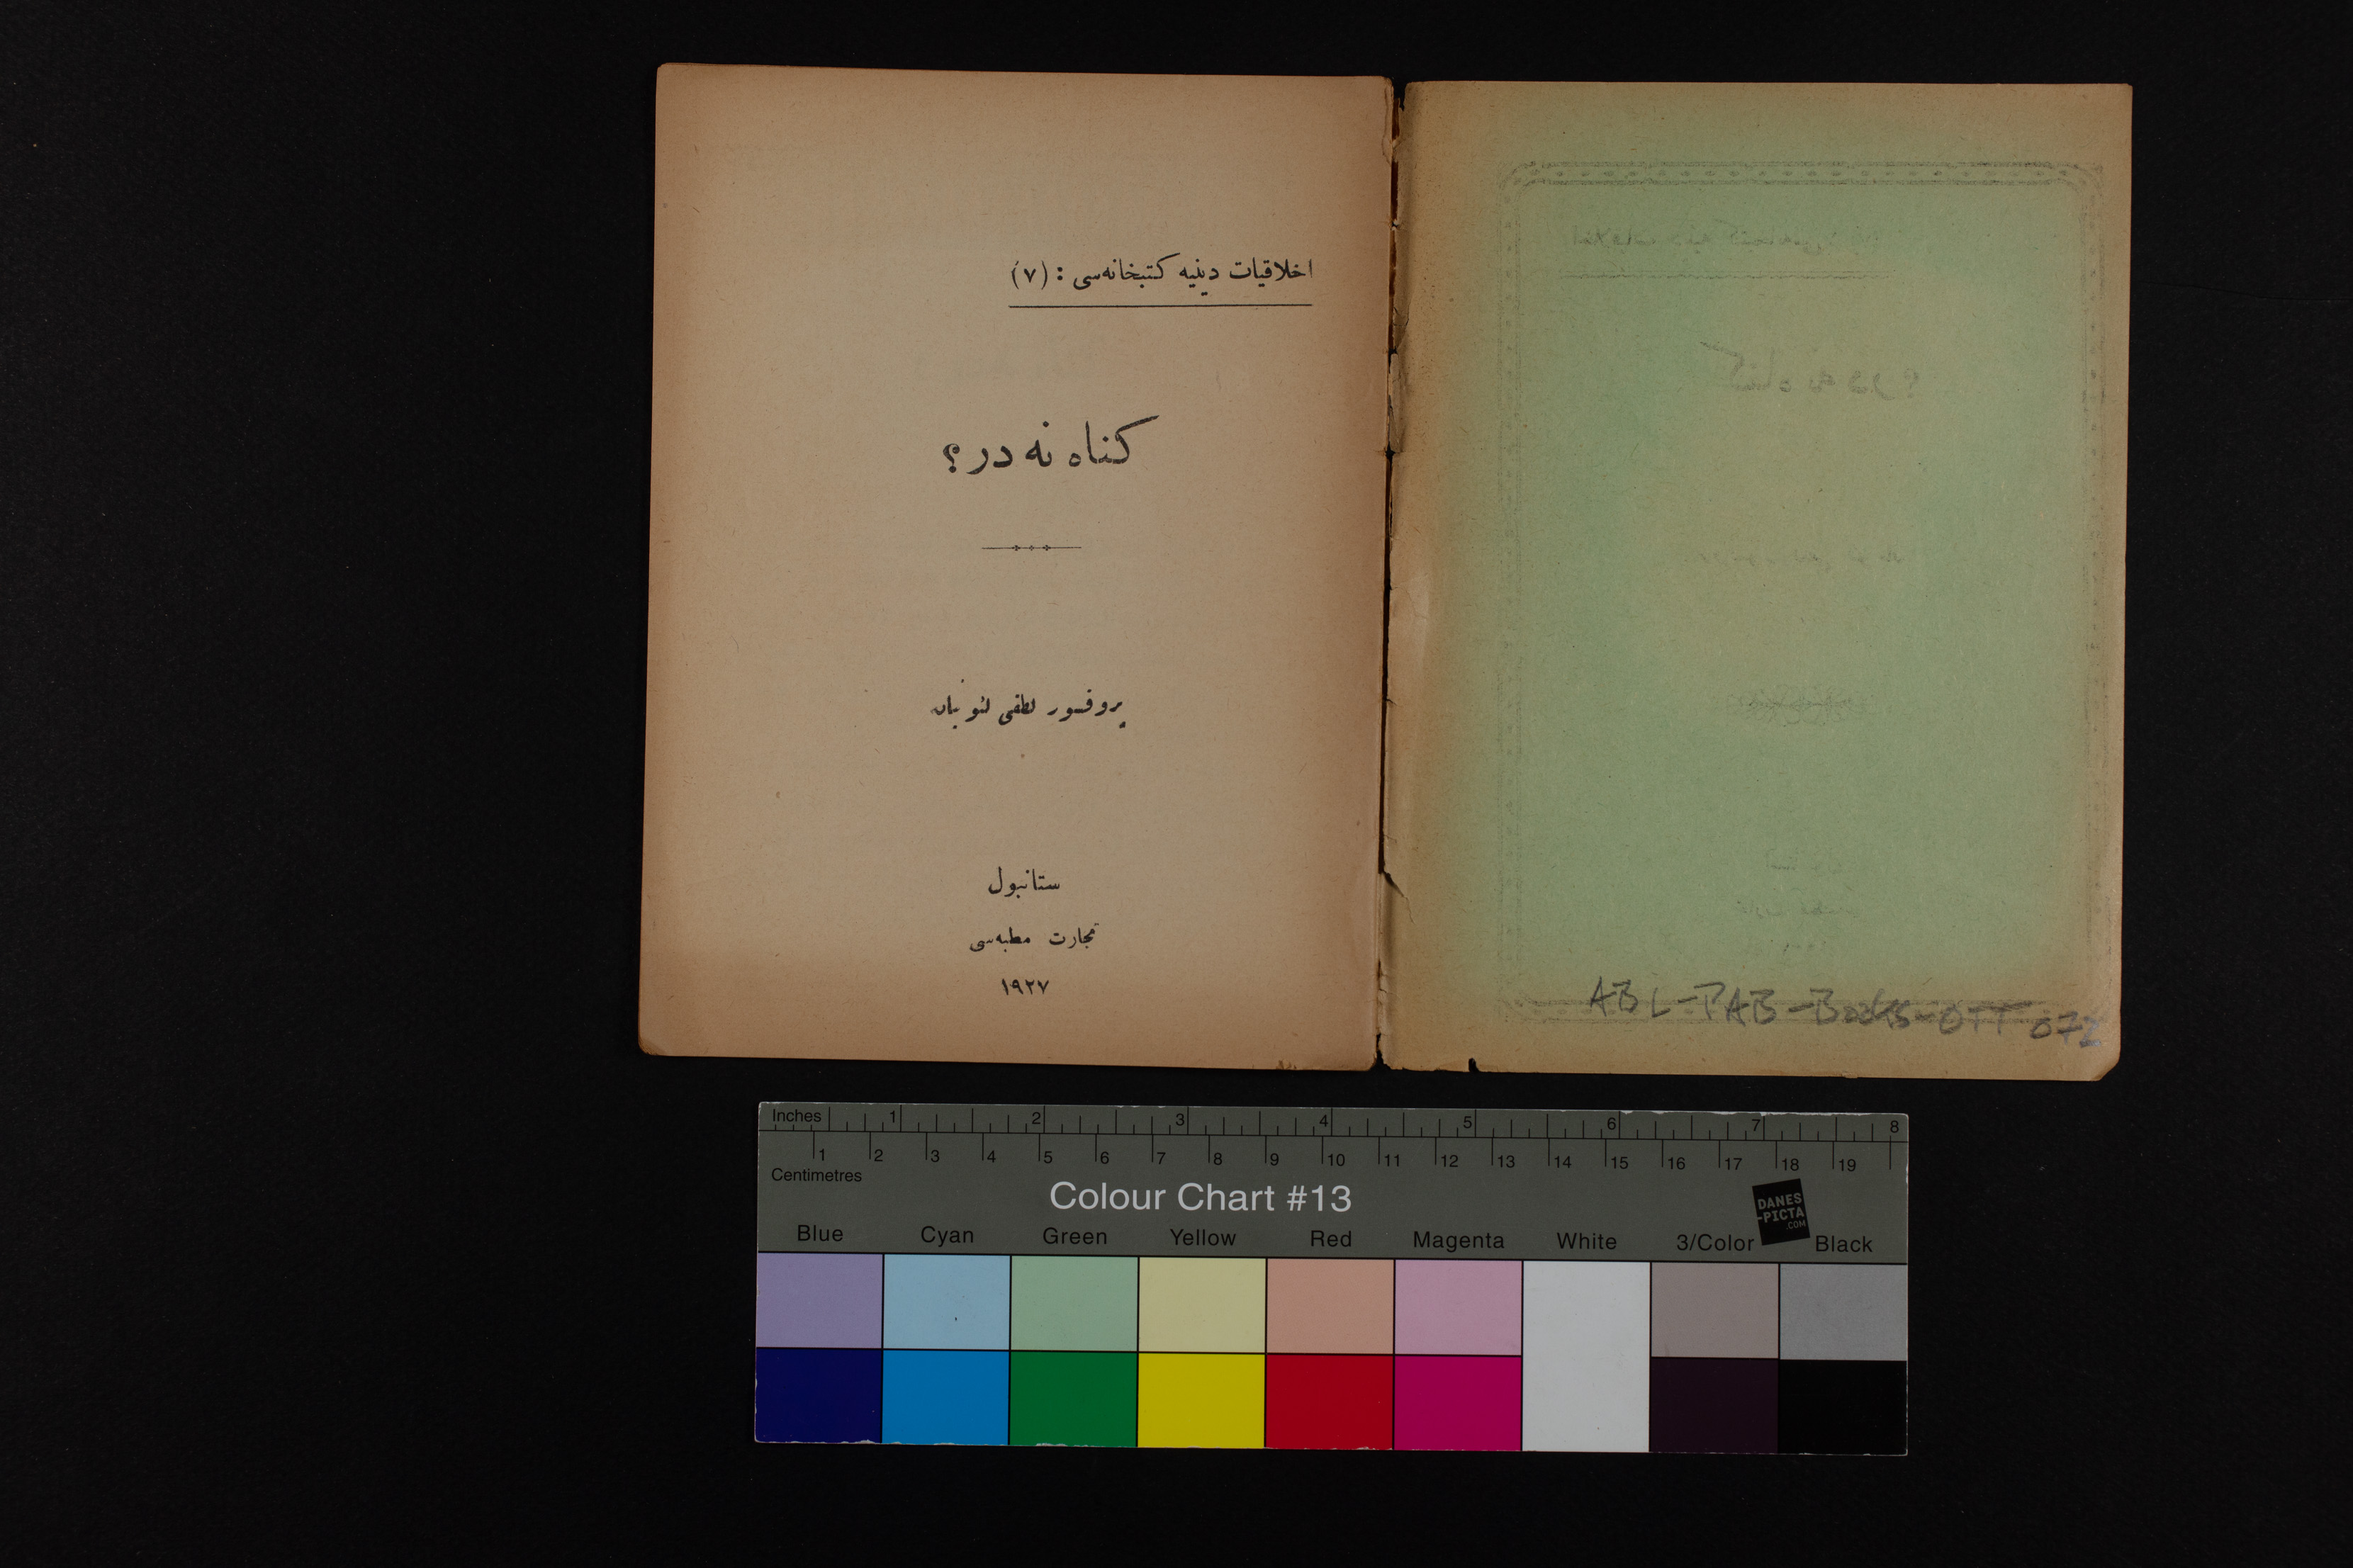 اخلاقیات دینیه کتبخانه‌سی : (۷)
کناه نه در؟
پروفسور لطفی لئونیان
ستانبول
تجارت مطبه‌سی
۱۹۲۷
ABL-PAB-Books-OTT 072
Inches 1 2 3 4 5 6 7 8
1 2 3 4 5 6 7 8 9 10 11 12 13 14 15 16 17 18 19
Centimetres
Colour Chart #13
DANES
-PICTA
.COM
Blue Cyan Green Yellow Red Magenta White 3/Color Black